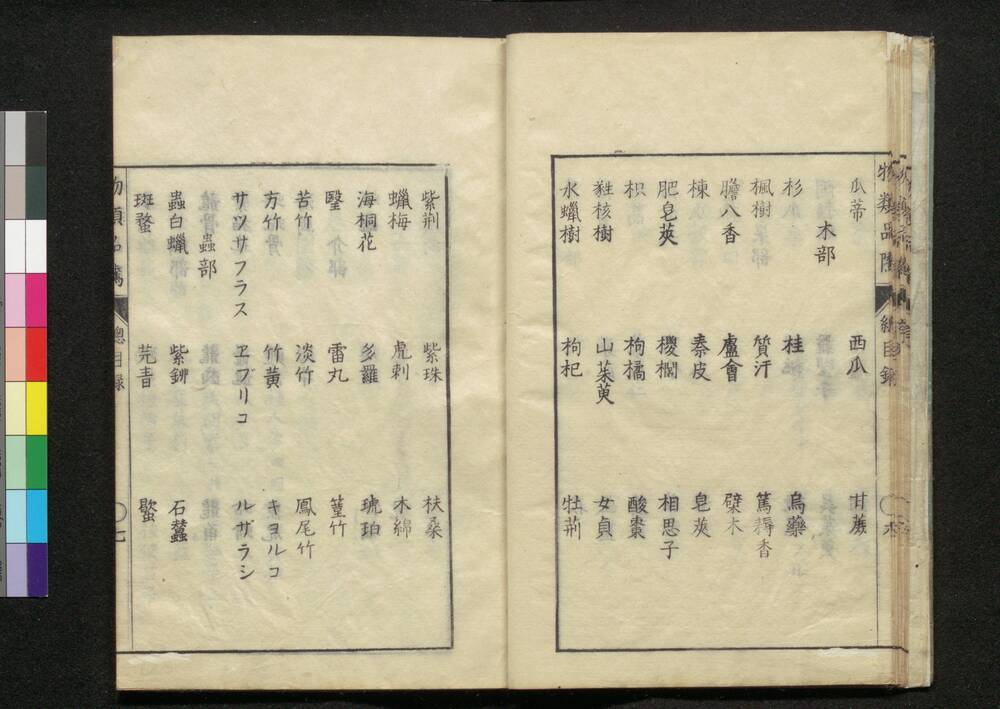 物類品隲 總目錄 六
瓜蒂 西瓜 甘蔗
木部
杉 桂 烏藥
楓樹 質汗 篤耨香
膽八香 盧會 檗木
楝 秦皮 皂莢
肥皂莢 椶櫚 相思子
枳 枸橘 酸棗
蕤核樹 山茱萸 女貞
水蠟樹 枸杞 牡荊
紫荊 紫珠 扶桑
蠟梅 虎刺 木綿
海桐花 多羅 琥珀
瑿 雷丸 篁竹
苦竹 淡竹 鳳尾竹
方竹 竹黃 キヨルコ
サツサフラス ヱブリコ ルザラシ
蟲部
蟲白蠟 紫鉚 石蠶
斑蝥 芫青 蟁
物類品隲 總目錄 七